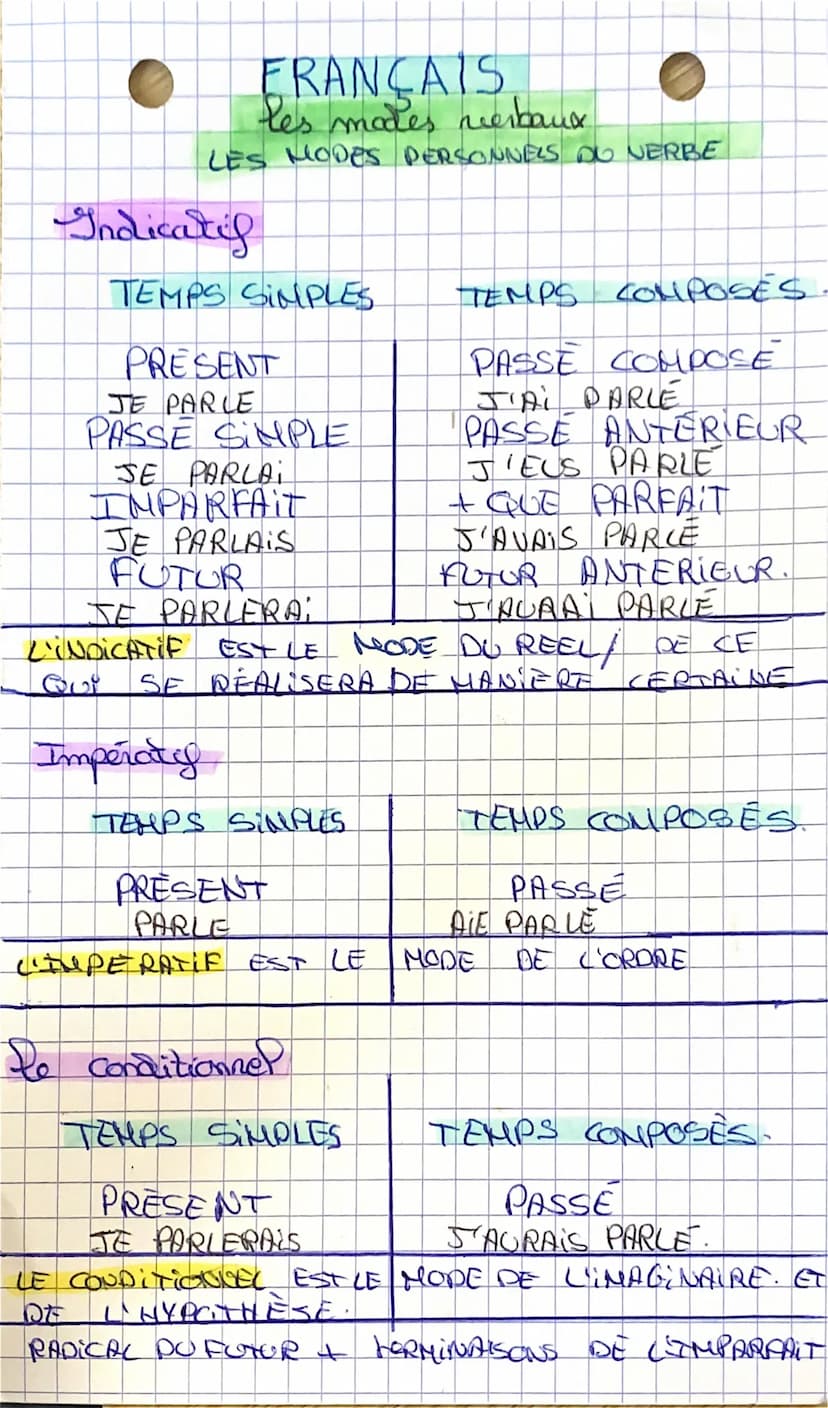 FRANÇAIS
les modes verbaux
LES MODES PERSONNELS DU VERBE
Indicatif
TEMPS SIMPLES TEMPS COMPOSÉS.
PRÉSENT PASSÉ COMPOSÉ
JE PARLE J'AI PARLÉ
PASSÉ SIMPLE PASSÉ ANTÉRIEUR
JE PARLAI J'EUS PARLÉ
IMPARFAIT + QUE PARFAIT
JE PARLAIS J'AVAIS PARLÉ
FUTUR FUTUR ANTÉRIEUR.
JE PARLERAI J'AURAI PARLÉ
L'INDICATIF EST LE MODE DU REEL / DE CE
QUI SE RÉALISERA DE MANIÈRE CERTAINE
Impératif
TEMPS SIMPLES TEMPS COMPOSÉS.
PRÉSENT PASSÉ
PARLE AIE PARLÉ
L'IMPERATIF EST LE MODE DE L'ORDRE
Le conditionnel
TEMPS SIMPLES TEMPS COMPOSÉS.
PRÉSENT PASSÉ
JE PARLERAIS J'AURAIS PARLÉ.
LE CONDITIONNEL EST LE MODE DE L'IMAGINAIRE. ET
DE L'HYPOTHÈSE.
RADICAL DU FUTUR + TERMINAISONS DE L'IMPARFAIT